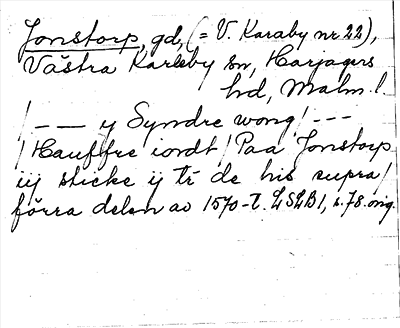 Jonstorp, gd, (= V. Karaby nr 22),
Västra Karleby sn, Harjagers
hd, Malm. l.
/ - — y Syndre wong / - - -
/ Hauffre iordt / Paa Jonstorp
iij sticke ij tr de his supra /
förra delen av 1570-t. LSLB 1, s. 78. orig.